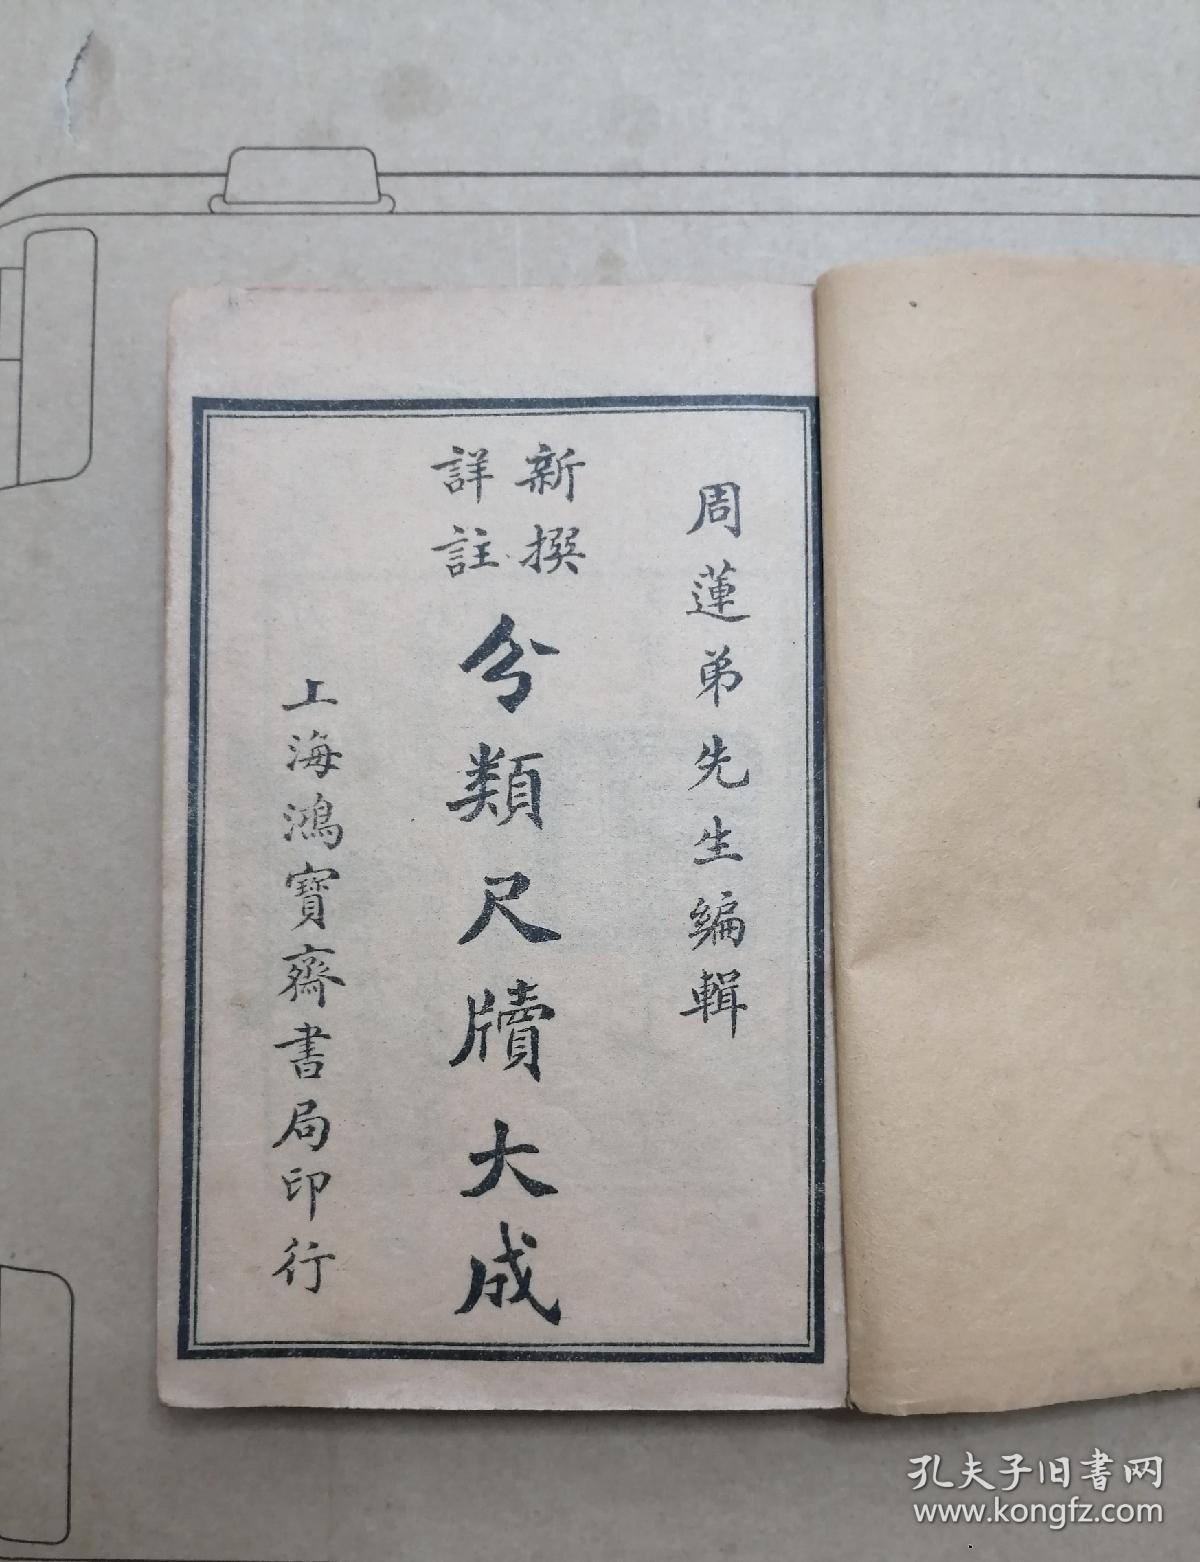 周蓮弟先生編輯
新撰
詳註
分類尺牘大成
上海鴻寶齋書局印行
孔夫子旧書网
www.kongfz.com